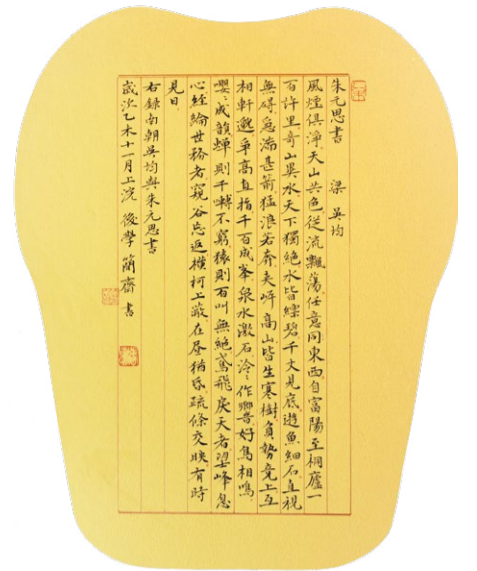 朱元思書 梁 吳均
風煙俱淨天山共色從流飄蕩任意同東西自富陽至桐廬一
百許里奇山異水天下獨絕水皆縹碧千丈見底遊魚細石直視
無礙急湍甚箭猛浪若奔夾岸高山皆生寒樹負勢競上互
相軒邈爭高直指千百成峯泉水激石泠々作響好鳥相鳴
嚶々成韻蟬則千囀不窮猿則百叫無絕鳶飛戾天者望峰息
心經綸世務者窺谷忘返橫柯上蔽在晝猶昏疏條交映有時
見日
右錄南朝吳均與朱元思書
歲次乙未十一月上浣 後學 簡齋 書